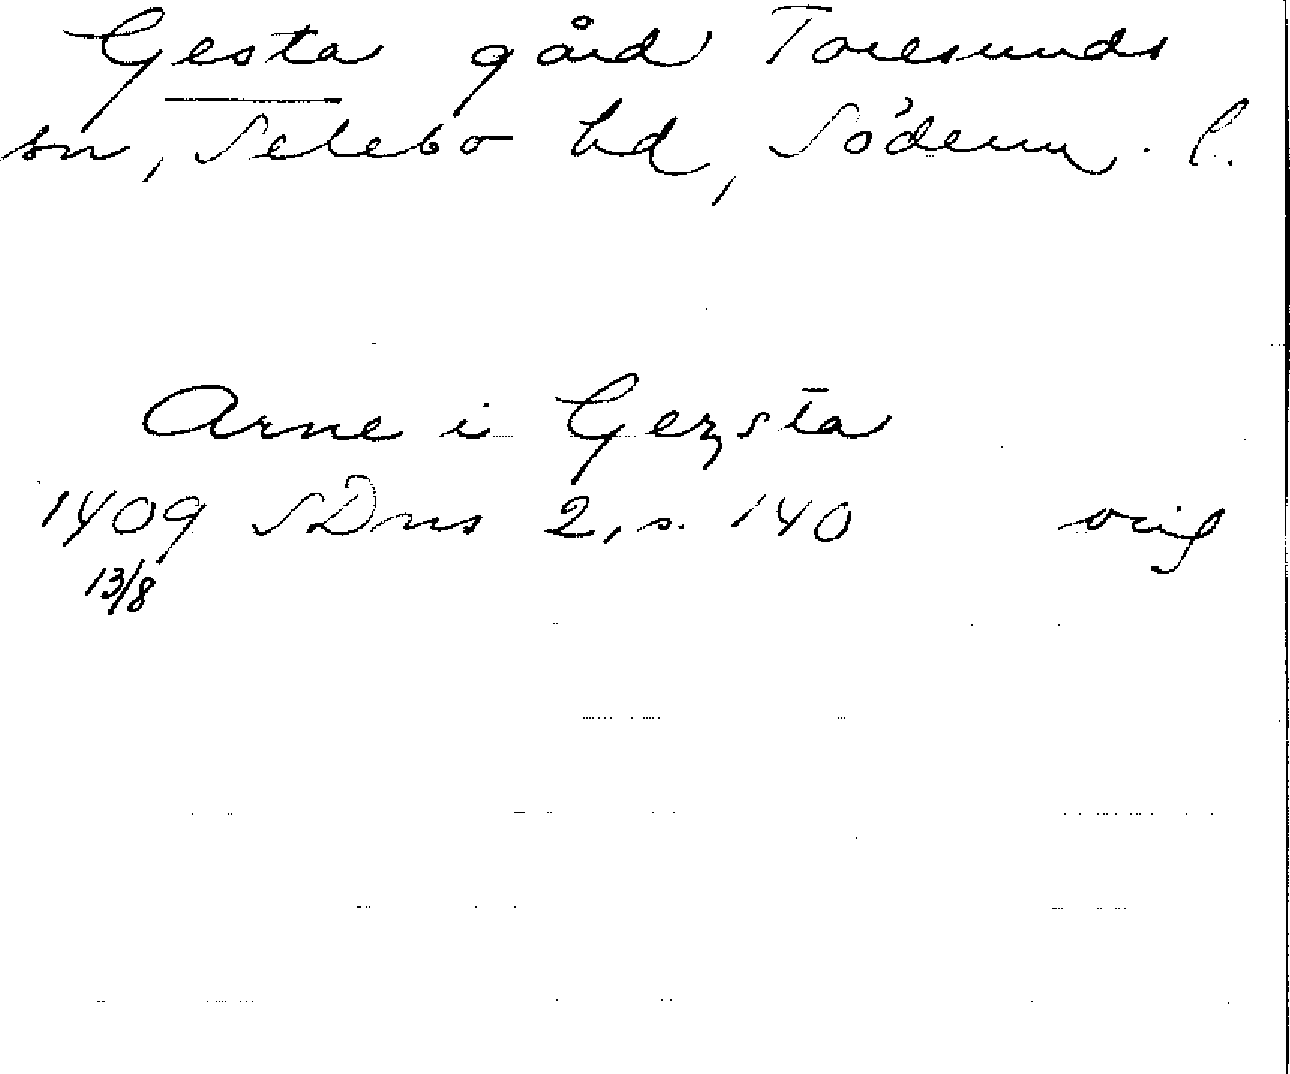 Gesta gård Toresunds
sn, Selebo hd, Söderm. l.
Arne i Gezsta
1409 SDns 2, s. 140 orig
13/8